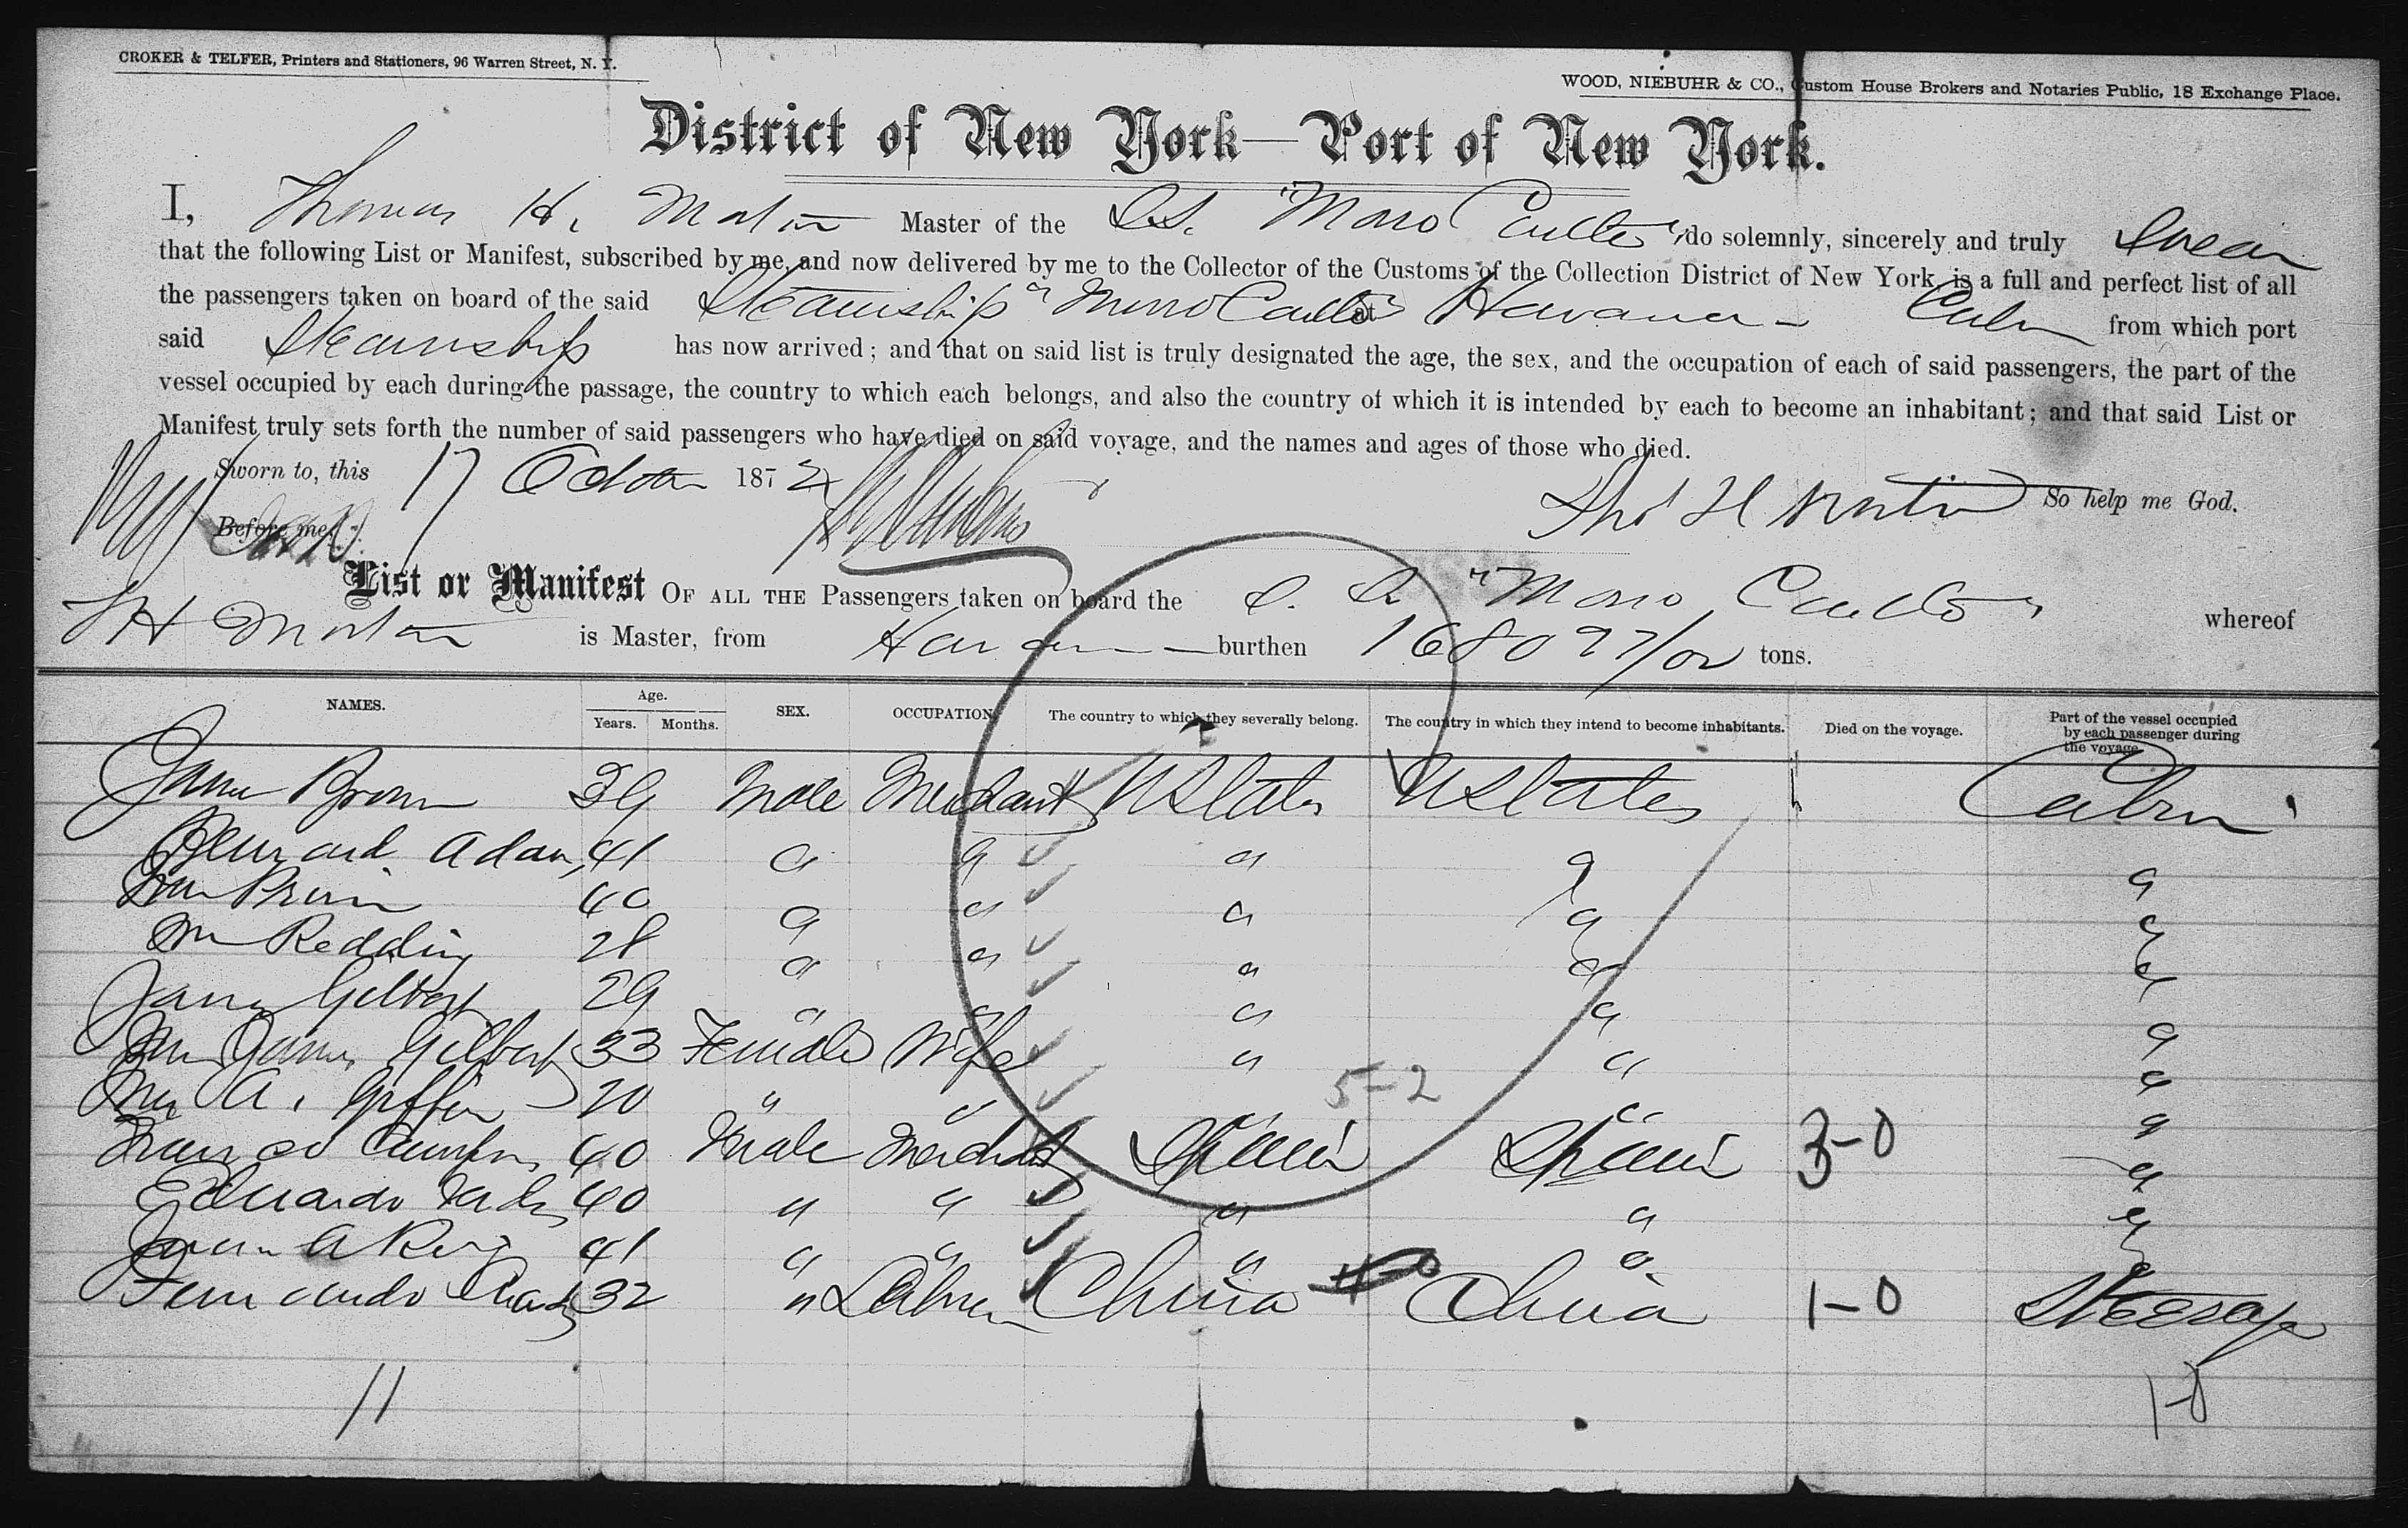 CROKER & TELFER, Printers and Stationers, 96 Warren Street, N. Y.
WOOD, NIEBUHR & CO., Custom House Brokers and Notaries Public, 18 Exchange Place.
District of New York—Port of New York.
I, Thomas H. Morton Master of the S.S. "Morro Castle" do solemnly, sincerely and truly Swear
that the following List or Manifest, subscribed by me, and now delivered by me to the Collector of the Customs of the Collection District of New York, is a full and perfect list of all
the passengers taken on board of the said Steamship "Morro Castle" at Havana - Cuba from which port
said Steamship has now arrived; and that on said list is truly designated the age, the sex, and the occupation of each of said passengers, the part of the
vessel occupied by each during the passage, the country to which each belongs, and also the country of which it is intended by each to become an inhabitant; and that said List or
Manifest truly sets forth the number of said passengers who have died on said voyage, and the names and ages of those who died.
Sworn to, this 17 October 1872
So help me God.
Before me,
List or Manifest OF ALL THE Passengers taken on board the S. S. "Morro Castle" whereof
T H Morton is Master, from Havana burthen 1680 tons.
NAMES. Age. Years. Months. SEX. OCCUPATION The country to which they severally belong. The country in which they intend to become inhabitants. Died on the voyage. Part of the vessel occupied by each passenger during the voyage.
James Brown 39 Male Merchant U States U States Cabin
Adam 41 " " " " "
40 " " " " "
Redding 28 " " " " "
James Gilbert 29 " " " " "
Mrs James Gilbert 33 Female Wife " " "
Mrs A. Griffin 20 " " " " "
5-2
40 Male Merchant Spain Spain 3-0 "
Eduardo 40 " " " " "
Juan A 41 " " " " "
Fernando 32 " Labor China China 1-0 Steerage
11
1-0